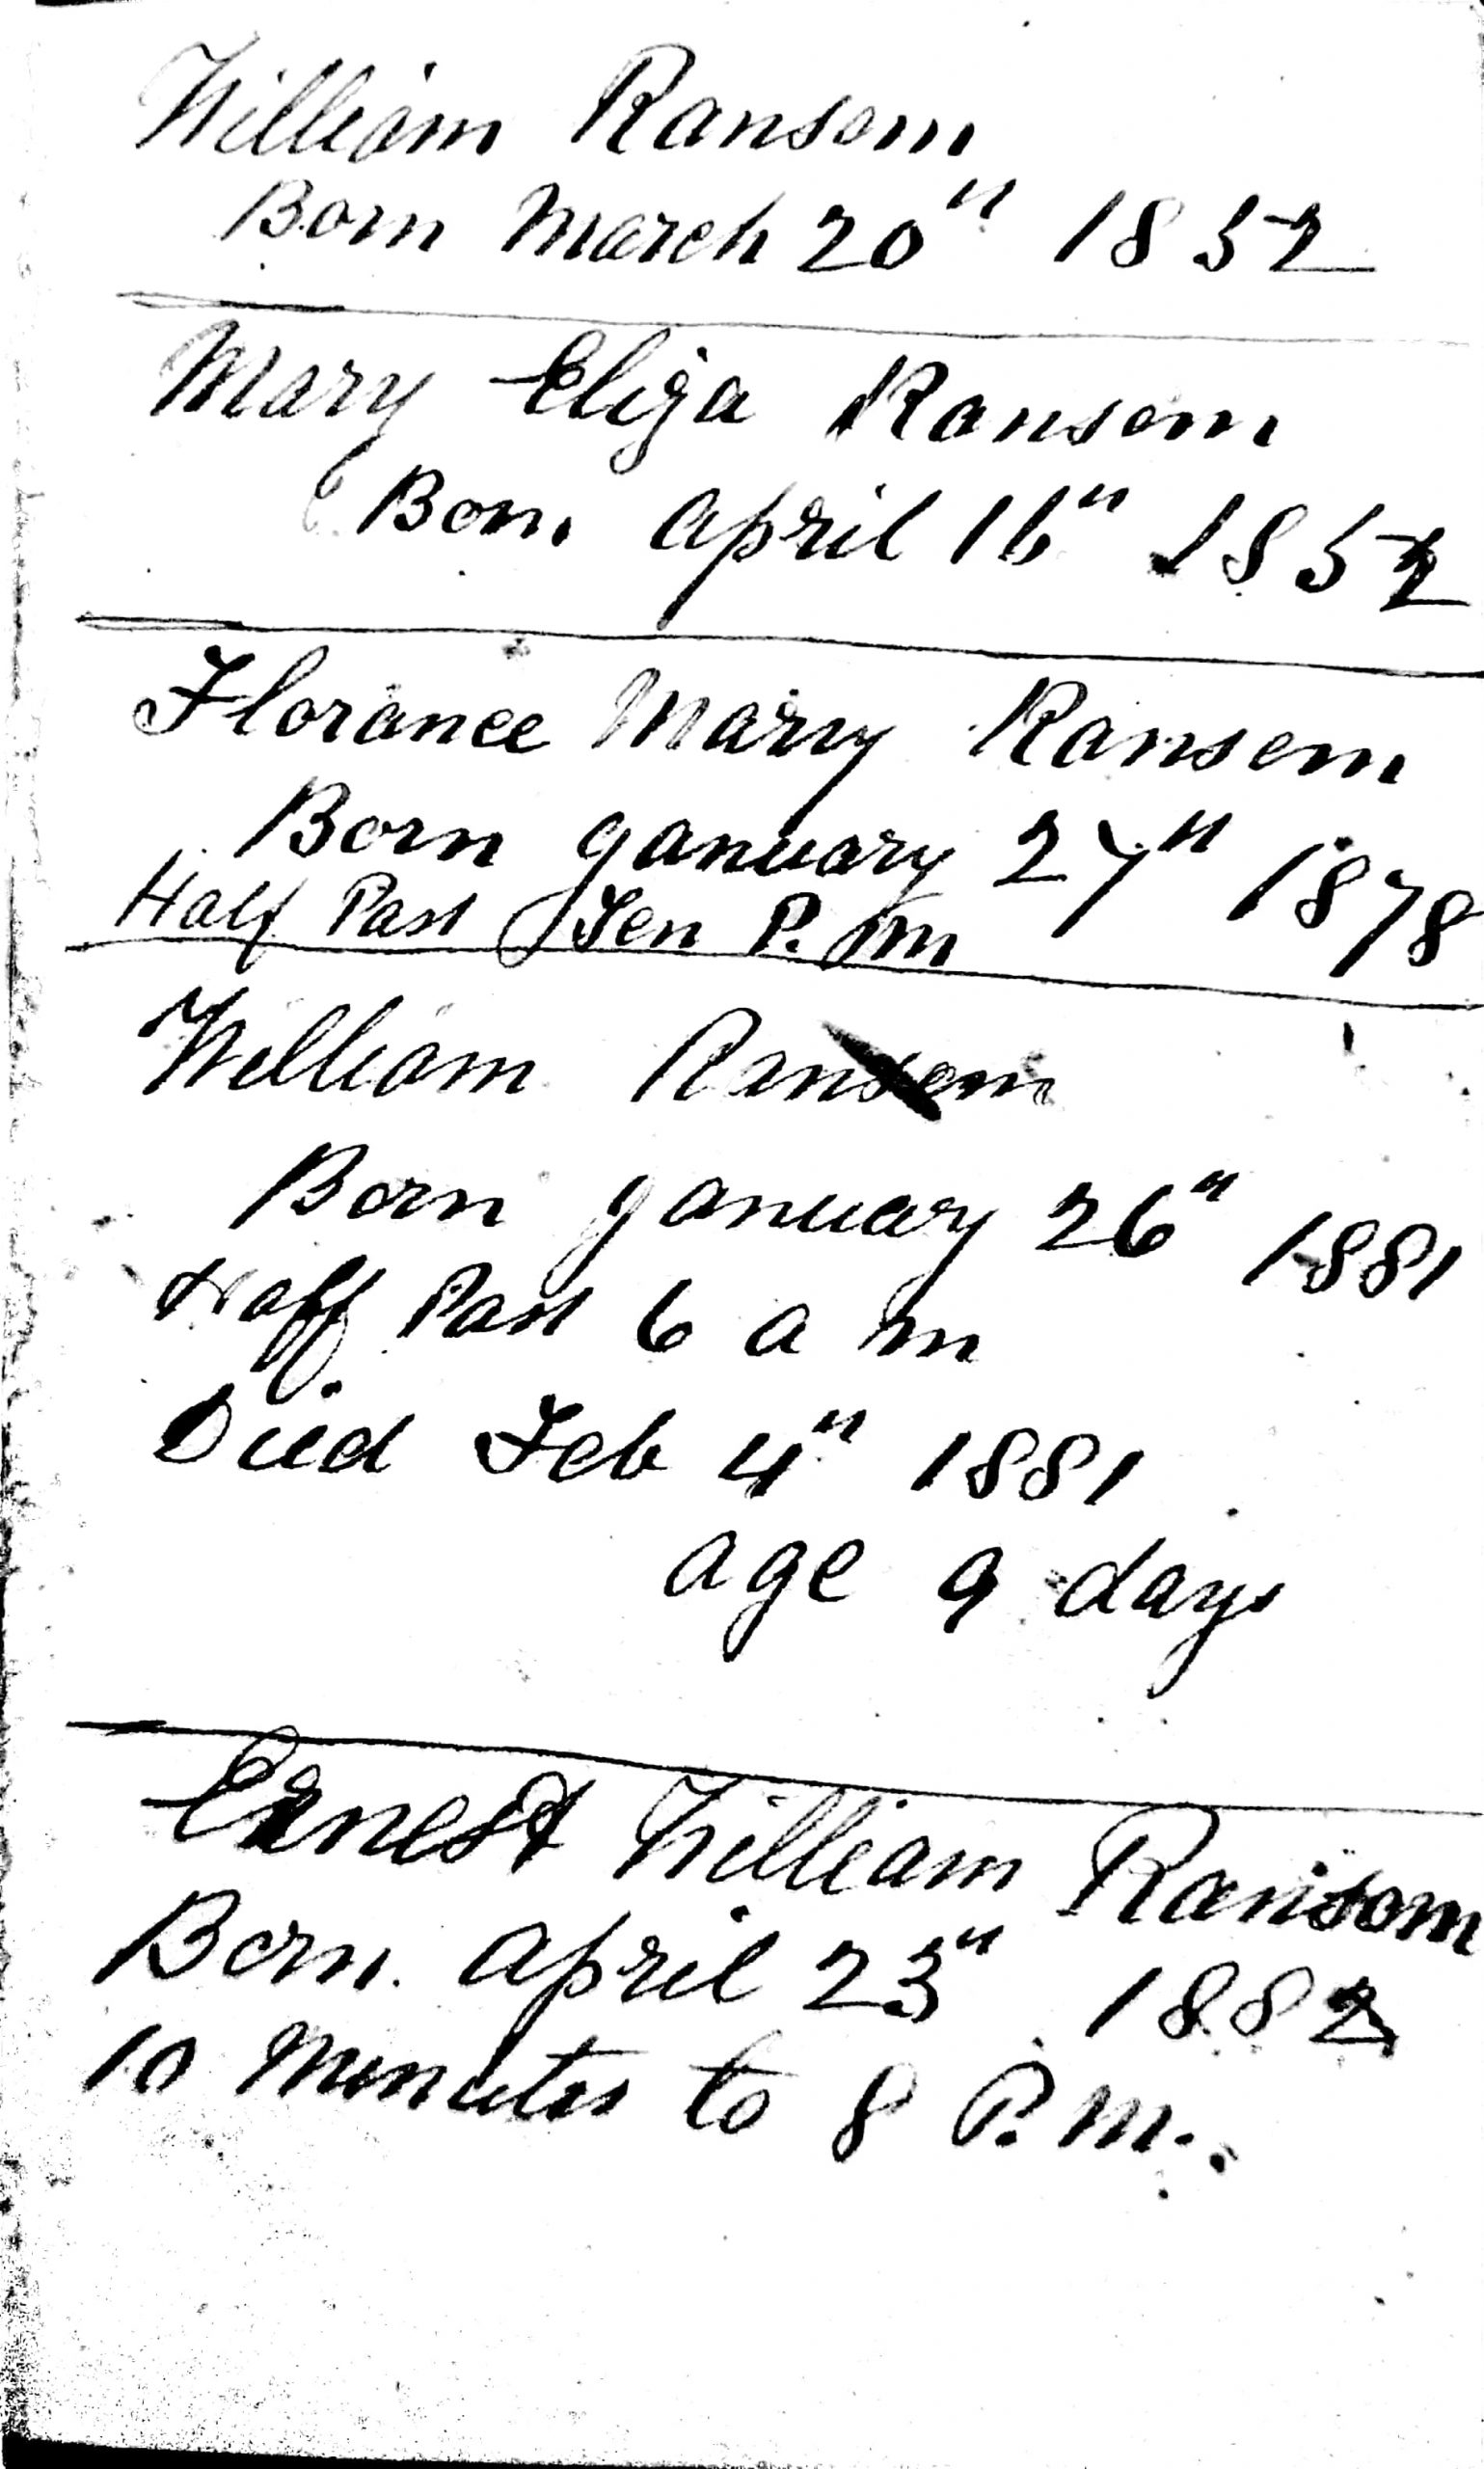 William Ransom
Born March 20" 1852
Mary Eliza Ransom
Born April 16" 1852
Florance Mary Ransom
Born January 27" 1878
Half Past Ten P. M
William Ransom
Born January 26" 1881
Haff Past 6 a m
Died Feb 4" 1881
age 9 days
Ernest William Ransom
Born April 23" 1882
10 Minutes to 8 P. M.